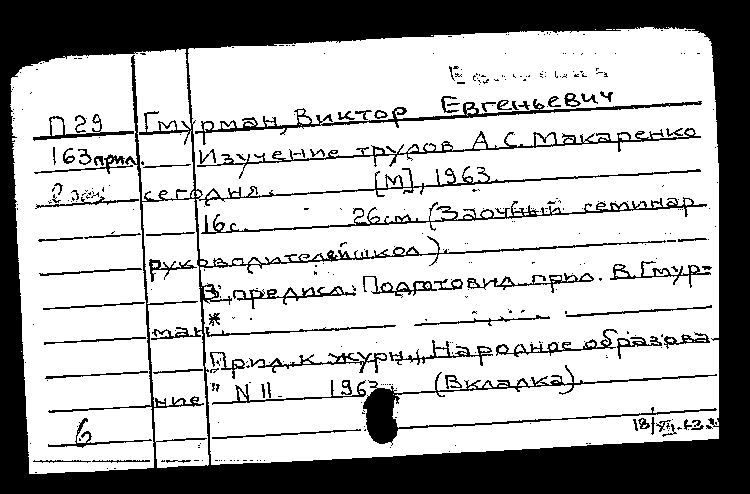 П29 Гмурман, Виктор Евгеньевич
163прил. Изучение трудов А.С. Макаренко
2 экз сегодня. [М], 1963.
16с. 26см. (Заочный семинар
руководителейшкол).
В предисл.: Подготовил прил. В. Гмур=
ман.
*
Прил. к журн. „Народное образова-
ние" N 11. 1963 (Вкладка).
6
18/XII.63